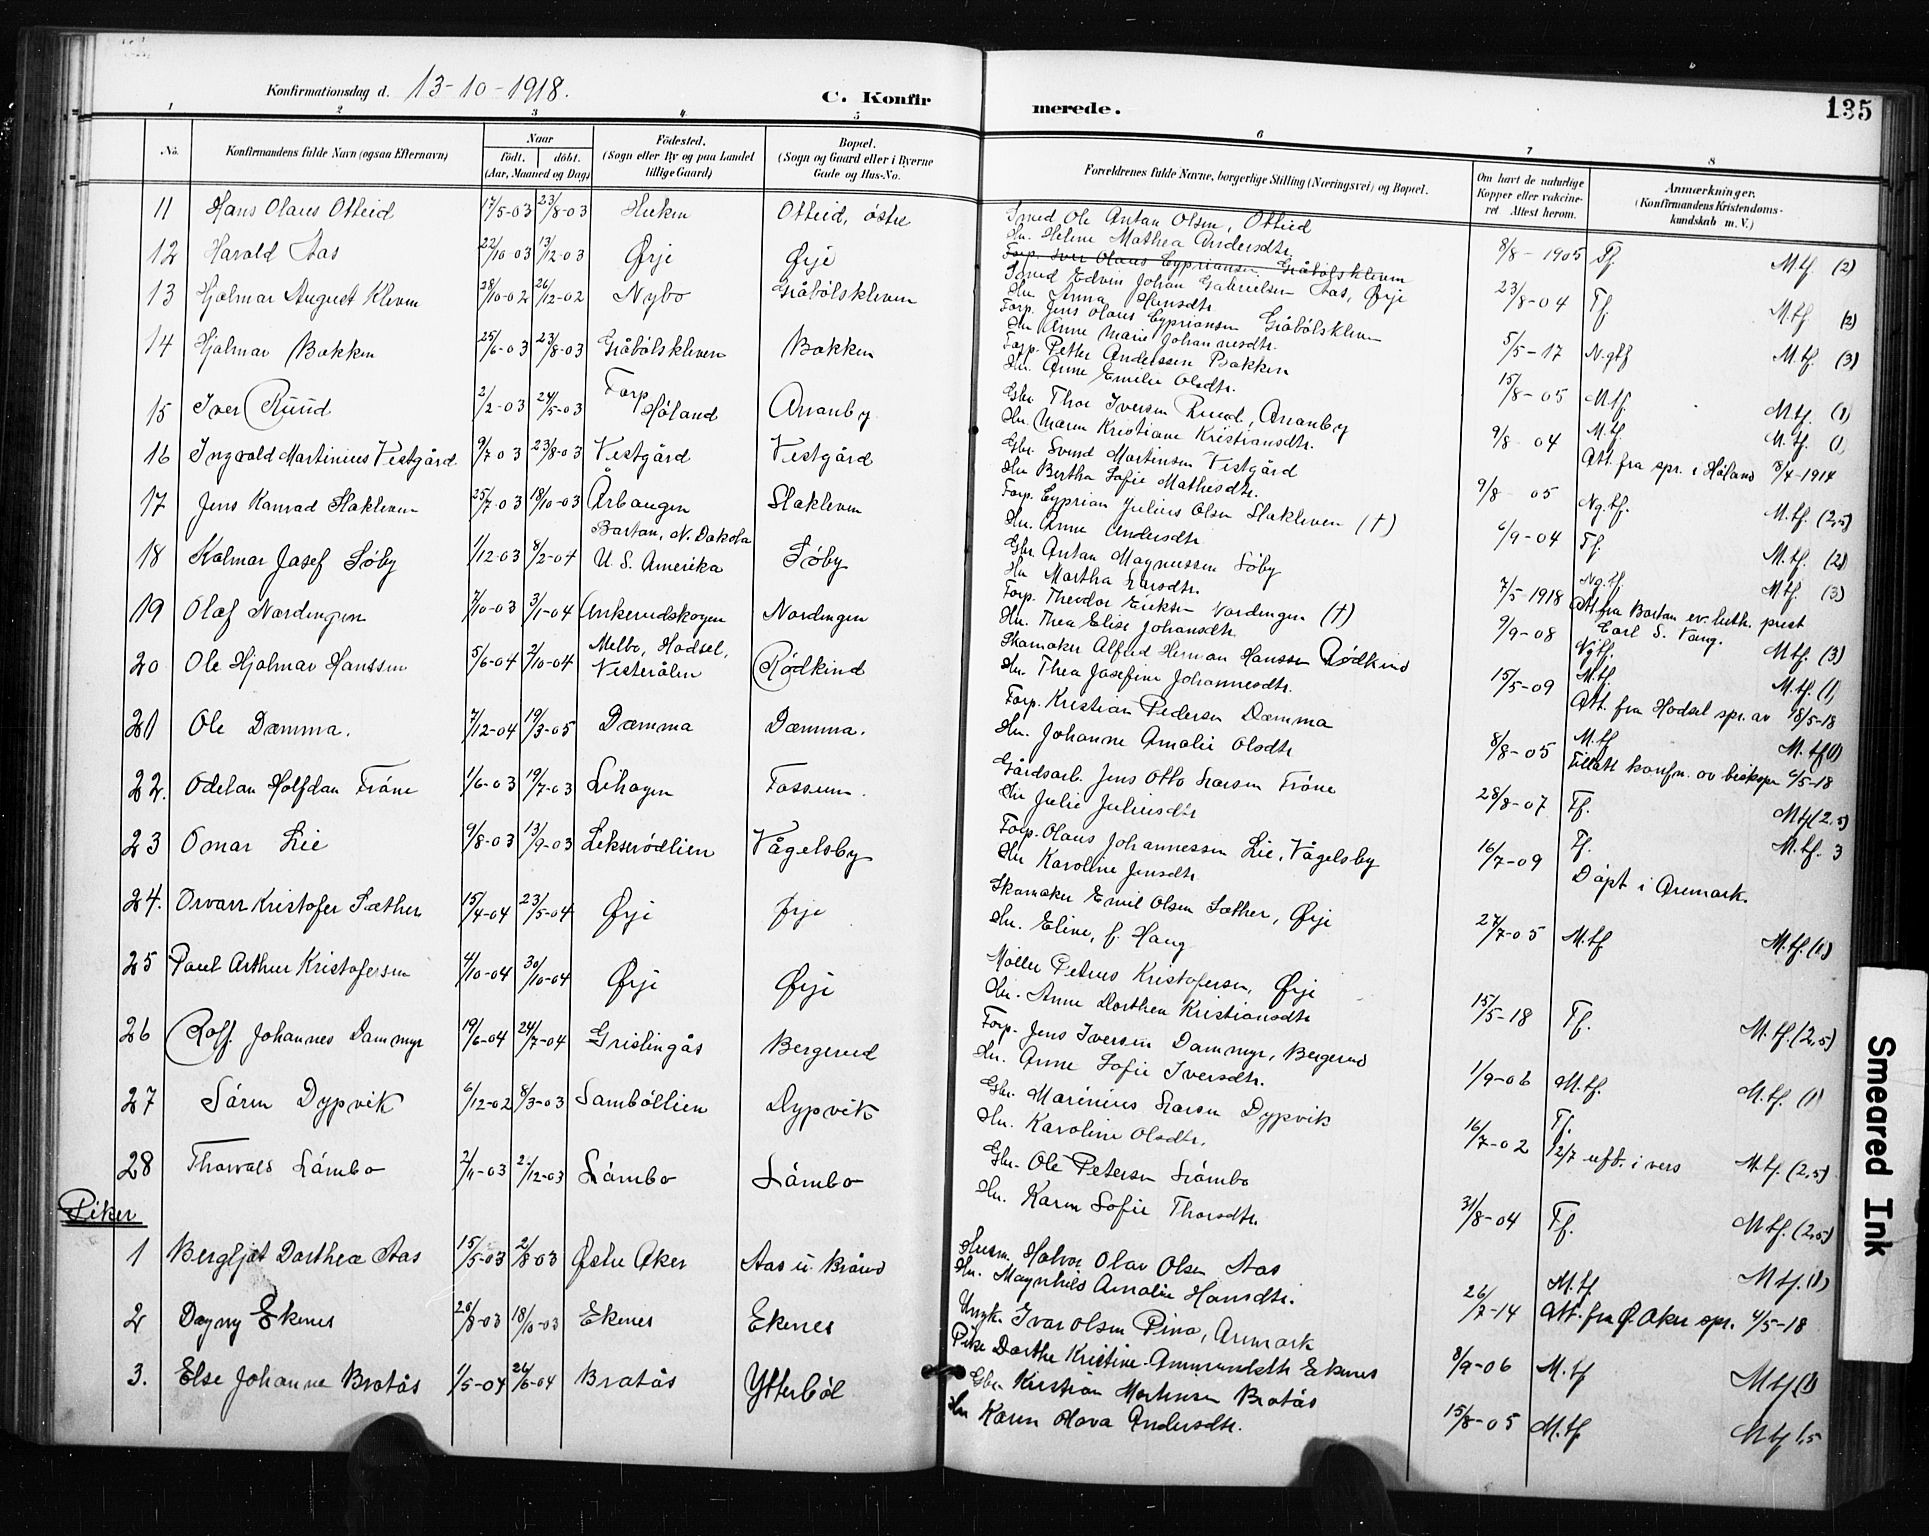 Konfirmationsdag d. 13-10-1918.
C. Konfir
merede.
135
1 2 3 4 5 6 7 8
No.
Konfirmandens fulde Navn (ogsaa Efternavn)
Naar
født. døbt.
(Aar, Maaned og Dag)
Fødested.
(Sogn eller By og paa Landet
tillige Gaard)
Bopæl.
(Sogn og Gaard eller i Byerne
Gade og Hus-No.
Forældrenes fulde Navne, borgerlige Stilling (Næringsvei) og Bopæl.
Om havt de naturlige
Kopper eller vaccine-
ret Attest herom.
Anmærkninger.
(Konfirmandens Kristendoms-
kundskab m. V.)
11 Hans Olaus Otteid 17/5-03 23/8-03 Otteid, østre
Smed Ole Antan Olsen, Otteid
Hu. Helene Mathea Andersdtr.
8/8-1905 Tf. M.tf. (2)
12 Harald Aas 22/10-03 13/12-03 Ørje Ørje
Forp. Iver Olaus Cypriansen Gråbölskleven
Smed Edvin Johan Gabrielsen Aas, Ørje
Hu. Anna Hansdtr.
23/8-04 Tf. M.tf. (2)
13 Hjalmar August Kleven 28/10-02 26/12-02 Nybo Gråbölskleven
Forp. Jens Olaus Cypriansen Gråbölskleven
Hu Anne Marie Johannesdtr.
5/5-17 N.gtf M.tf. (3)
14 Hjalmar Bakken 25/6-03 23/8-03 Gråbölskleven Bakken
Forp. Petter Anderssen Bakken
Hu. Anne Emilie Olsdtr.
15/8-05 M.tf. M.tf. (1)
15 Iver Ruud 2/2-03 24/5-03 Forp Høland Arranby
Gbr. Thor Iversen Ruud, Arranby
Hu. Maren Kristiane Kristiansdtr.
9/8 04 M.tf. M.tf. (1)
Att. fra spr. i Høland 8/4-1914
16 Ingvald Martinius Vestgård 9/7 03 23/8-03 Vestgård Vestgård
Gbr. Svend Martinsen Vestgård
Hu Bertha Sofie Mathisdtr.
9/8 05 Ng.tf. M.tf. (2,5)
17 Jens Konrad Slakleven 25/7-03 18/10-03 Årbaugen Slakleven
Forp. Cyprian Julius Olsen Slakleven (†)
Hu. Anne Andersdtr
6/9-04 Tf. M.tf. (2)
18 Kalmar Josef Søby 1/12-03 8/2-04 Bartan, N. Dakota U. S. Amerika Søby
Gbr. Antan Magnussen Søby
Hu Martha Larsdtr.
7/5-1918 Ng.tf. M.tf. (3)
Att. fra Bartan ev. luth. prest
Carl S. Vang.
19 Olaf Nordengen 7/10-03 3/1-04 Ankerudskogen Nordengen
Forp. Theodor Eriksen Nordengen (†)
Hu. Thea Elise Johansdtr
9/9-08 M.tf. (3)
20 Ole Hjalmar Hanssen 5/6-04 2/10-04 Melbo, Hadsel, Vesterålen Rødkind
Skomaker Alfred Herman Hanssen Rødkind
Hu. Thea Josefine Johannesdtr.
15/5-09 M.tf. M.tf. (1)
Att. fra Hadsel spr. av 18/5-18
21 Ole Dæmma. 7/12-04 19/3-05 Dæmma Dæmma.
Forp. Kristian Pedersen Dæmma
Hu. Johanne Amalie Olsdtr
8/8-05 M.tf M.tf (1)
Tillatt konfm. av biskopen 6/5-18
22. Odelan Halfdan Tråne 1/6-03 19/7-03 Lihagen Fossum.
Gårdsarb. Jens Otto Larsen Tråne
Hu Julie Juliusdtr
28/8-07 Tf. M.tf (2,5)
23 Omar Lie 9/8-03 13/9-03 Leksrødlien Vågelsby
Forp. Olaus Johannessen Lie, Vågelsby
Hu Karoline Jensdtr
16/7-09 Tf. M.tf. 3
Døpt i Aremark.
24. Orvarr Kristofer Sæther 15/4-04 23/5-04 Ørje Ørje
Skomaker Emil Olsen Sæther, Ørje
Hu. Eline, f. Haug
27/7-05 M.tf M.tf. (1)
25 Paul Arthur Kristofersen 4/10-04 30/10-04 Ørje Ørje
Møller Petrus Kristofersen, Ørje
Hu. Anne Dorthea Kristiansdtr
15/5-18 Tf. M.tf. (2,5)
26 Rolf Johannes Dammyr 19/6-04 24/7-04 Grislingås Bergerud
Forp. Jens Iversen Dammyr, Bergerud
Hu. Anne Sofie Iversdtr.
1/9-06 M.tf. M.tf. (1)
27 Søren Dypvik 6/12-02 8/3-03 Sambøllien Dypvik
Gbr. Marinius Larsen Dypvik
Hu. Karoline Olsdtr.
16/7-02 Tf. M.tf. (2,5)
12/7 uft. i vers
28 Thorvald Lömbo 2/11-03 Lömbo Lömbo
Gbr. Ole Petersen Lömbo
Hu. Karen Sofie Thorsdtr.
31/8-04 Tf. M.tf. (2,5)
Piker
1 Bergljot Dorthea Aas 15/5-03 2/8-03 Østre Aker Aas u. Brånd
Husm. Halvor Olav Olsen Aas
Hu. Magnhild Amalie Hansdtr.
26/7-14 M.tf. M.tf. (1)
Att. fra Ø. Aker spr. 4/5-18
2 Dagny Ekenes 20/8-03 18/10-03 Ekenes Ekenes
Ungk. Ivar Olsen Pina, Aremark
Pike Dorthe Kristine Ammundsdtr Ekenes
8/9-06 M.tf M.tf (1)
3. Else Johanne Bratås 1/5-04 26/6-04 Bratås Ytterböl
Gbr Kristian Martinsen Bratås
Hu Karen Olava Andersdtr.
15/8-05 M.tf M.tf 1,5
Smeared Ink